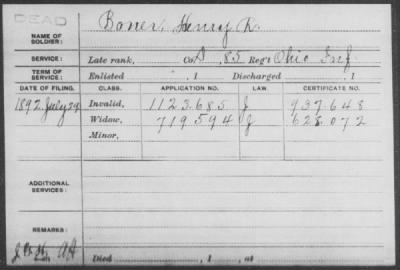 DEAD
NAME OF SOLDIER: Boner, Henry R.
SERVICE: Late rank, Co. D, 85 Reg't Ohio Inf.
TERM OF SERVICE: Enlisted , 1 Discharged , 1
DATE OF FILING. CLASS. APPLICATION NO. LAW. CERTIFICATE NO.
1892 July 29 Invalid, 1123.685 J 937.648
Widow, 719594 J 628.072
Minor,
ADDITIONAL SERVICES:
REMARKS:
Died , 1 , at